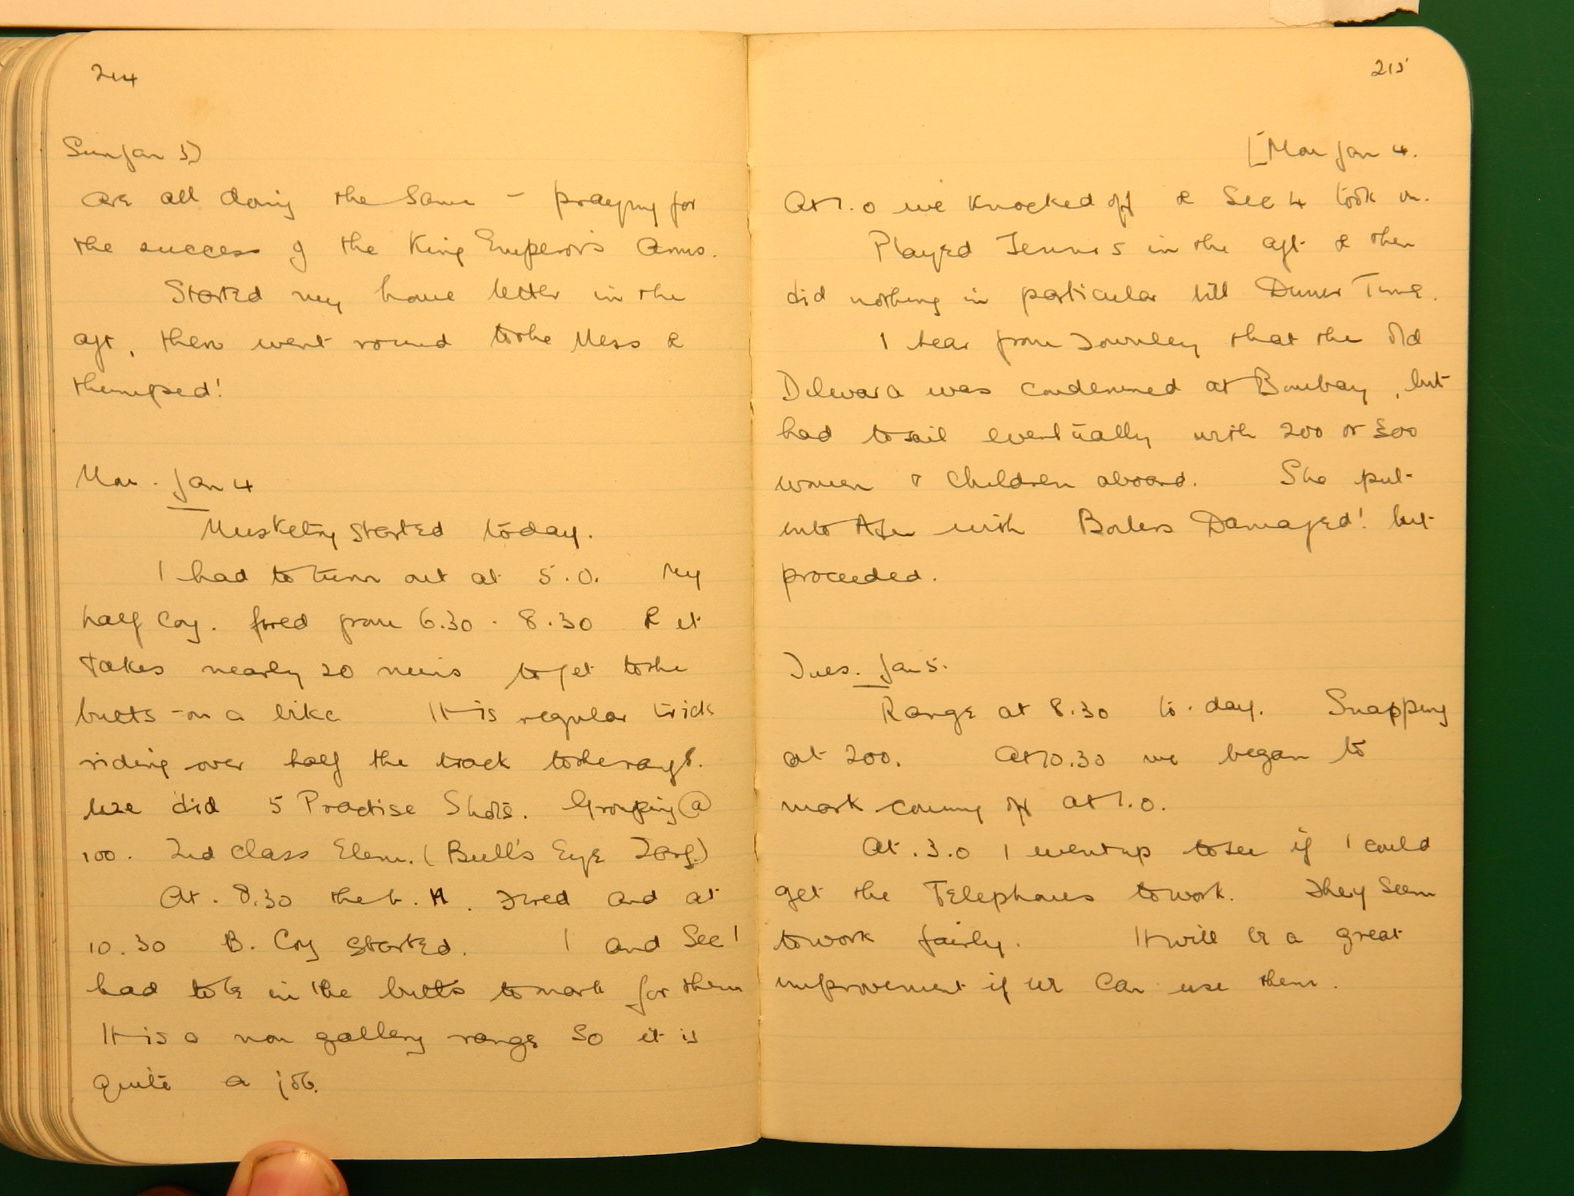 214
Sun Jan 3)
are all doing the same – praying for
the success of the King Emperor's Arms.
Started my home letter in the
aft, then went round to the Mess &
thumped!
Mon. Jan 4
Musketry started today.
I had to turn out at 5.0. My
half Coy. fired from 6.30 - 8.30 & it
takes nearly 20 mins to get to the
butts on a bike It is regular trick
riding over half the track to the range.
We did 5 Practise Shots. Grouping @
100. 2nd Class Elem. (Bull's Eye Targ.)
At. 8.30 the fired and at
10.30 B. Coy started. I and Sec 1
had to be in the butts to mark for them
It is a non gallery range so it is
quite a job.
215
[Mon Jan 4.
At 1.0 we knocked off & Sec 4 took on.
Played Tennis in the aft & then
did nothing in particular till Dinner Time.
I hear from Townley that the old
Dilwara was condemned at Bombay, but
had to sail eventually with 200 or 300
women & children aboard. She put
into with Boilers Damaged! but
proceeded.
Tues. Jan 5.
Range at 8.30 to-day. Snapping
at 200. At 10.30 we began to
mark coming off at 1.0.
At. 3.0 I went up to see if I could
get the Telephones to work. They seem
to work fairly. It will be a great
improvement if we can use them.